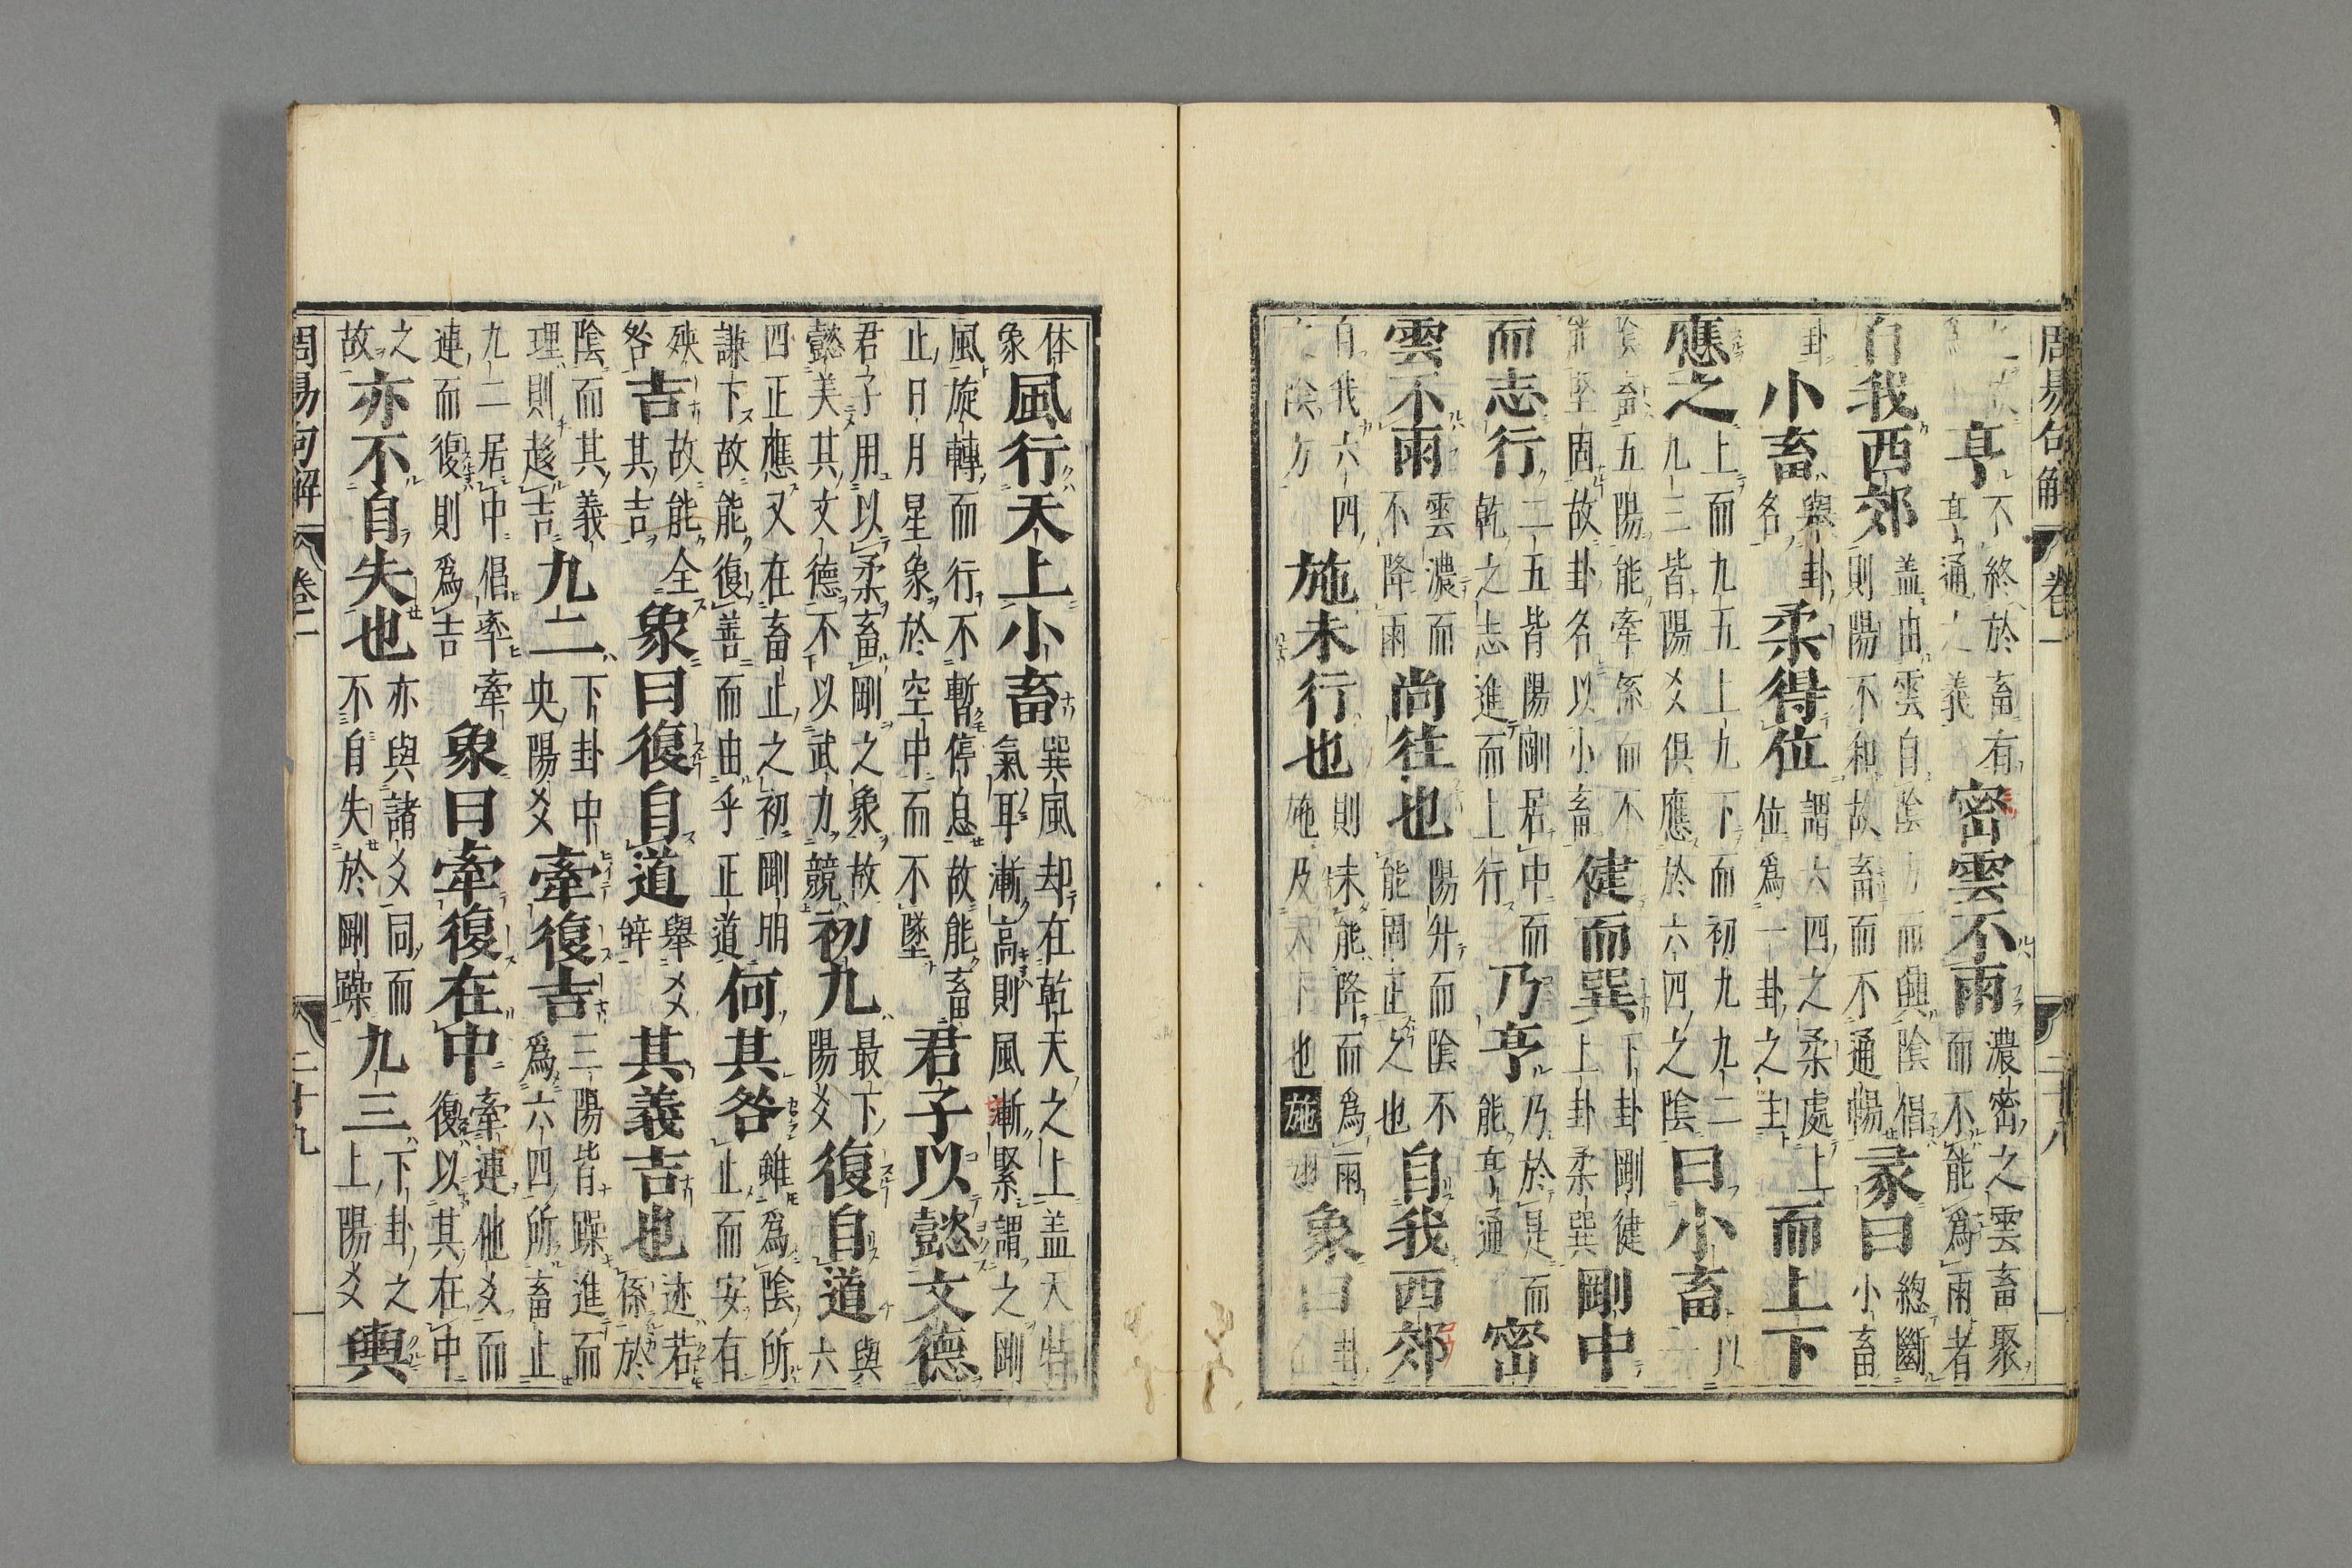 周易句解 卷一 二十八
亨 不終於畜有亨通之義 密雲不雨 濃密之雲畜聚而不能爲雨者
自我西郊 盖由雲自陰方而興陰倡則陽不和故畜而不通暢 彖曰 緫斷小畜
卦 小畜 舉卦名 柔得位 謂六四之柔處上位爲一卦之主 而上下
應之 上而九五上九下而初九九二九三皆陽爻俱應於六四之陰 曰小畜 以一
陰畜五陽能牽係而不能堅固故卦名以小畜 健而巽 下卦剛健上卦柔巽 剛中
而志行 二五皆陽剛居中而乾之志進而上行 乃亨 乃於是而能亨通 密
雲不雨 雲濃而不降雨 尚往也 陽升而陰不能固止之也 自我西郊
自我六四陰方 施未行也 則未能降而爲雨施及天下也 施 象曰 卦
体象 風行天上小畜 巽風却在乾天之上盖天特氣耳漸高則風漸緊謂之剛
風旋轉而行不暫停息故能畜止日月星象於空中而不墜 君子以懿文德
君子用以柔畜剛之象故懿美其文德不以武力競 初九 最下陽爻 復自道 與六
四正應又在畜止之初剛明謙下故能復善而由乎正道 何其咎 雖爲陰所止而安有
殃咎 吉 故能全其吉 象曰復自道 舉爻辝 其義吉也 迹若係於
陰而其義理則趍吉 九二 下卦中央陽爻 牽復吉 三陽皆躁進而爲六四所畜止
九二居中倡率牽連而復則爲吉 象曰牽復在中 牽連他爻而復以其在中
之故 亦不自失也 亦與諸爻同而不自失於剛躁 九三 下卦之上陽爻 輿
周易句解 卷二 二十九